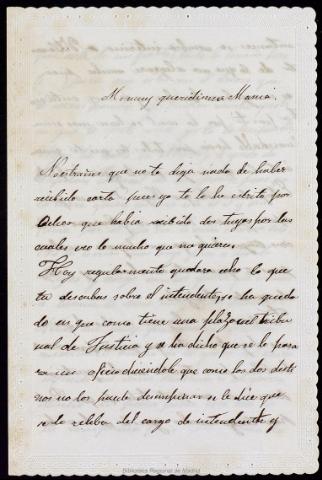 Mi muy queridisima Maria.
No estrañes que no te diga nada de haber
recibido carta pues ya te lo he escrito por
que habia recibido dos tuyas por las
cuales veo lo mucho que me quieres.
Hoy regularmente quedara echo lo que
tu deseabas sobre el intendente, se ha queda
do en que como tiene una plaza del tribu
nal de Justicia y se ha dicho que se le pasa
ra un oficio diciendole que como los dos desti
nos no los puede desempeñar se le dice que
se le releba del cargo de intendente y
Biblioteca Regional de Madrid